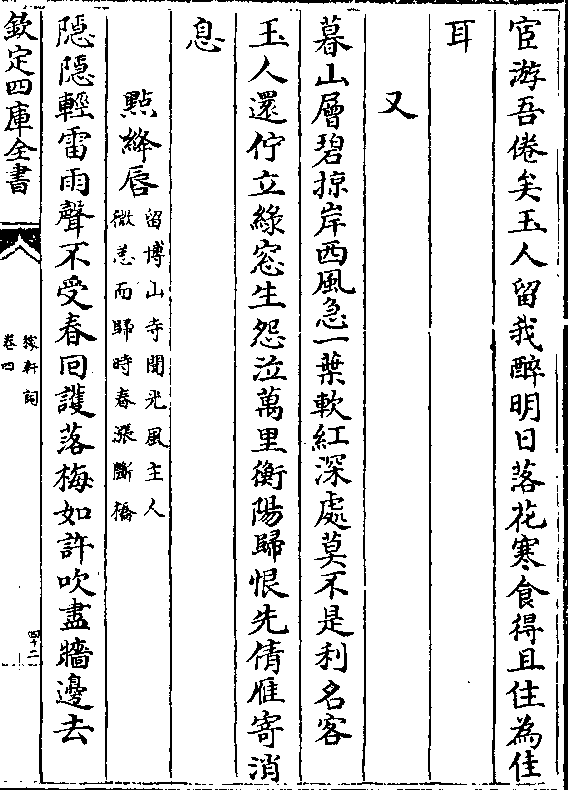 宦游吾倦矣玉人留我醉明日落花寒食得且住為佳
耳
又
暮山層碧掠岸西風急一葉軟紅深處莫不是利名客
玉人還佇立綠窻生怨泣萬里衡陽歸恨先倩雁寄消
息
點絳唇
留博山寺聞光風主人
微恙而歸時春漲斷橋
隠隠輕雷雨聲不受春囘護落梅如許吹盡牆邊去
欽定四庫全書
稼軒詞
卷四
四十二